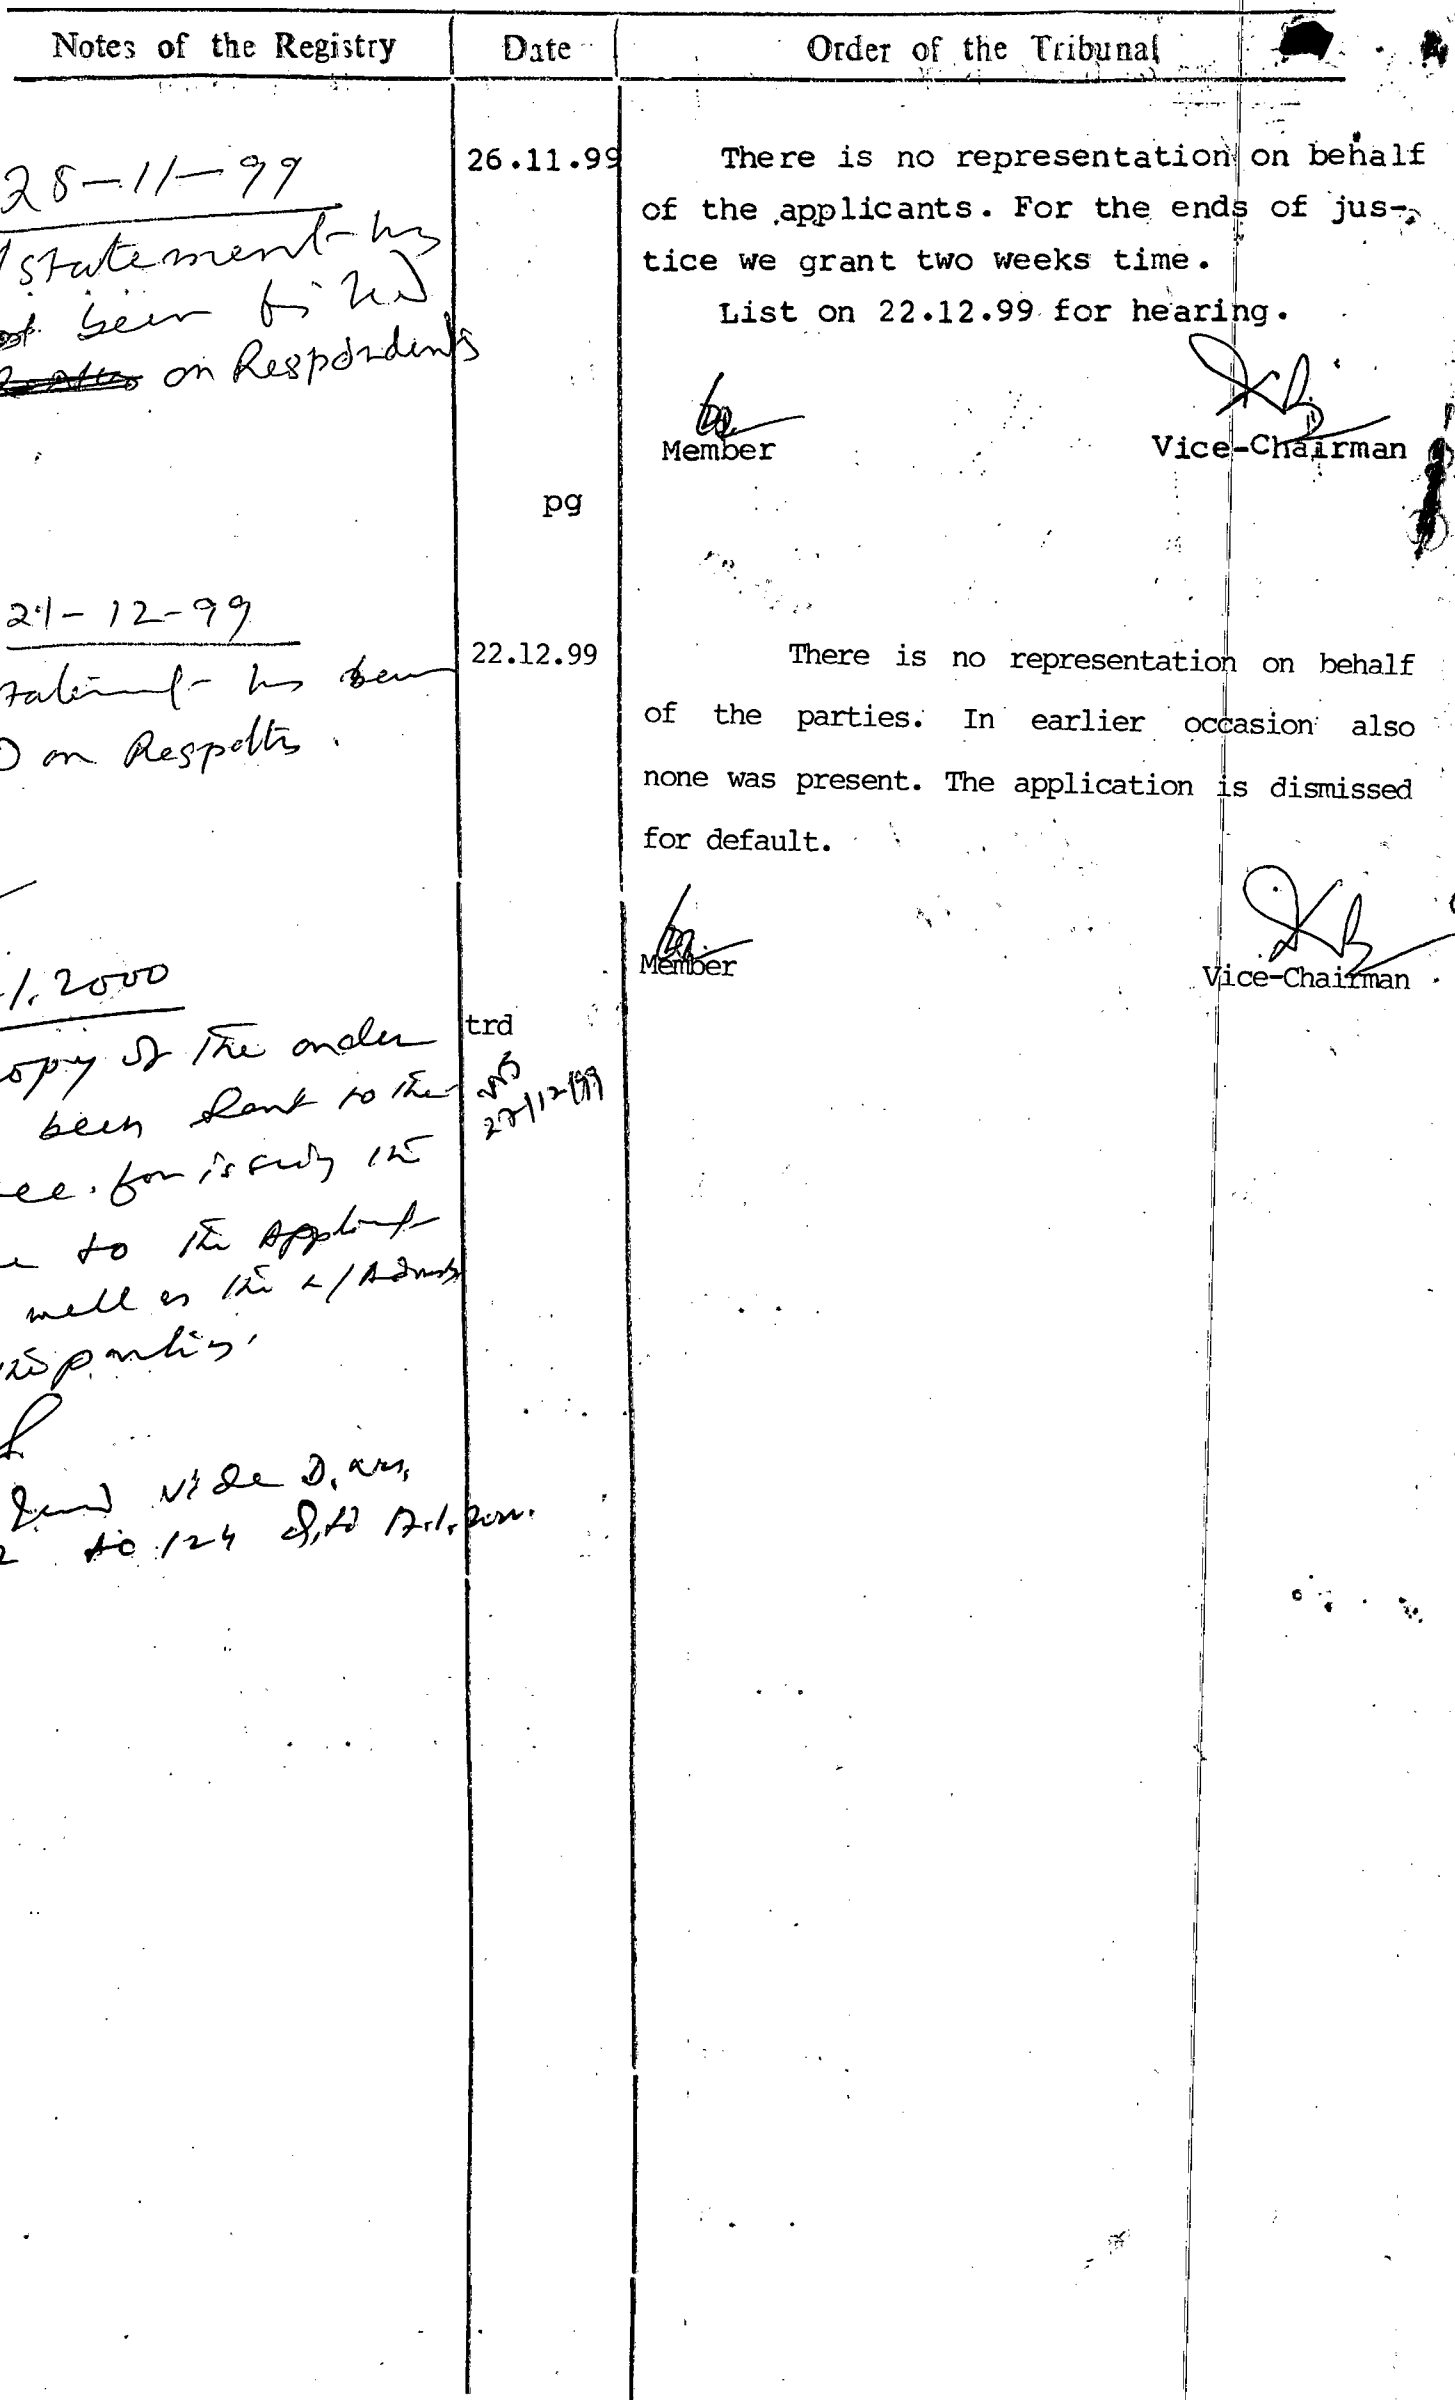 Notes of the Registry
Date
Order of the Tribunal
28-11-99
statement has
been filed
on Respondents
26.11.99
There is no representation on behalf
of the applicants. For the ends of jus-
tice we grant two weeks time.
List on 22.12.99 for hearing.
Member
Vice-Chairman
pg
21-12-99
has been
on Respdts.
22.12.99
There is no representation on behalf
of the parties. In earlier occasion also
none was present. The application is dismissed
for default.
Member
Vice-Chairman
trd
1.2000
opy of the order
been sent to the
for issuing the
to the Applicant
well as the
parties.
vide D.
to 124